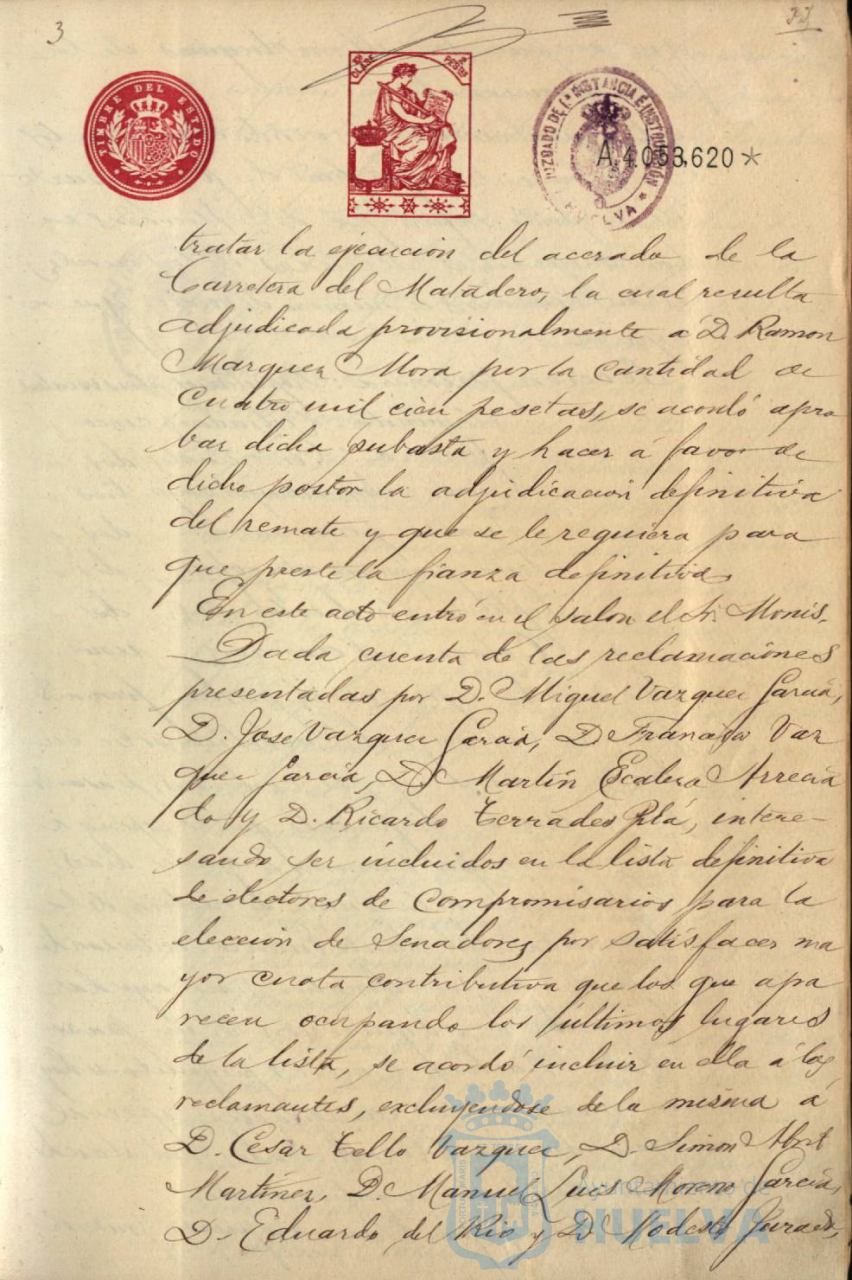 3
TIMBRE DEL ESTADO
CLASE
PESETAS
JUZGADO DE 1ª INSTANCIA E INSTRUCCIÓN
HUELVA
A.4.053.620*
tratar la ejecución del acerado de la
Carretera del Matadero, la cual resulta
adjudicada provisionalmente á D. Ramon
Marquez Mora por la cantidad de
cuatro mil cien pesetas, se acordó apro
bar dicha subasta y hacer á favor de
dicho postor la adjudicacion definitiva
del remate y que se le requiera para
que preste la fianza definitiva.
En este acto entró en el salon el Sr. Monis.
Dada cuenta de las reclamaciones
presentadas por D. Miguel Vazquez Garcia,
D. José Vazquez Garcia, D. Francisco Vaz
quez Garcia, D. Martín Escalera Arrecia
do y D. Ricardo Terrades Plá, intere-
sando ser incluidos en la lista definitiva
de electores de Compromisarios para la
elección de Senadores por satisfacer ma
yor cuota contributiva que los que apa
recen ocupando los últimos lugares
de la lista, se acordó incluir en ella á los
reclamantes, excluyendose de la misma á
D. Cesar Tello Vazquez, D. Simon Abril
Martinez, D. Manuel Luis Moreno Garcia,
D. Eduardo del Rio y D. Modesto Jurado,
Ayuntamiento de
HUELVA